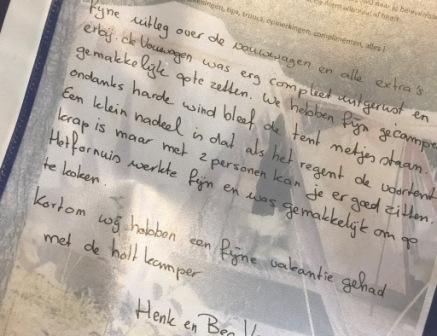 ingen, tips, trotucs, opmerkingen, complimenten, alles!
Fijne uitleg over de vouwwagen en alle extra's
erbij. de Vouwwagen was erg compleet uitgerust en
gemakkelijk op te zetten. We hebben fijn gecampe
ondanks harde wind bleef de tent netjes staan.
Een klein nadeel is dat als het regent de voortent
krap is maar met 2 personen kan je er goed zitten.
Het fornuis werkte fijn en was gemakkelijk om op
te koken.
Kortom wij hebben een fijne vakantie gehad
met de holt kamper
Henk en Be